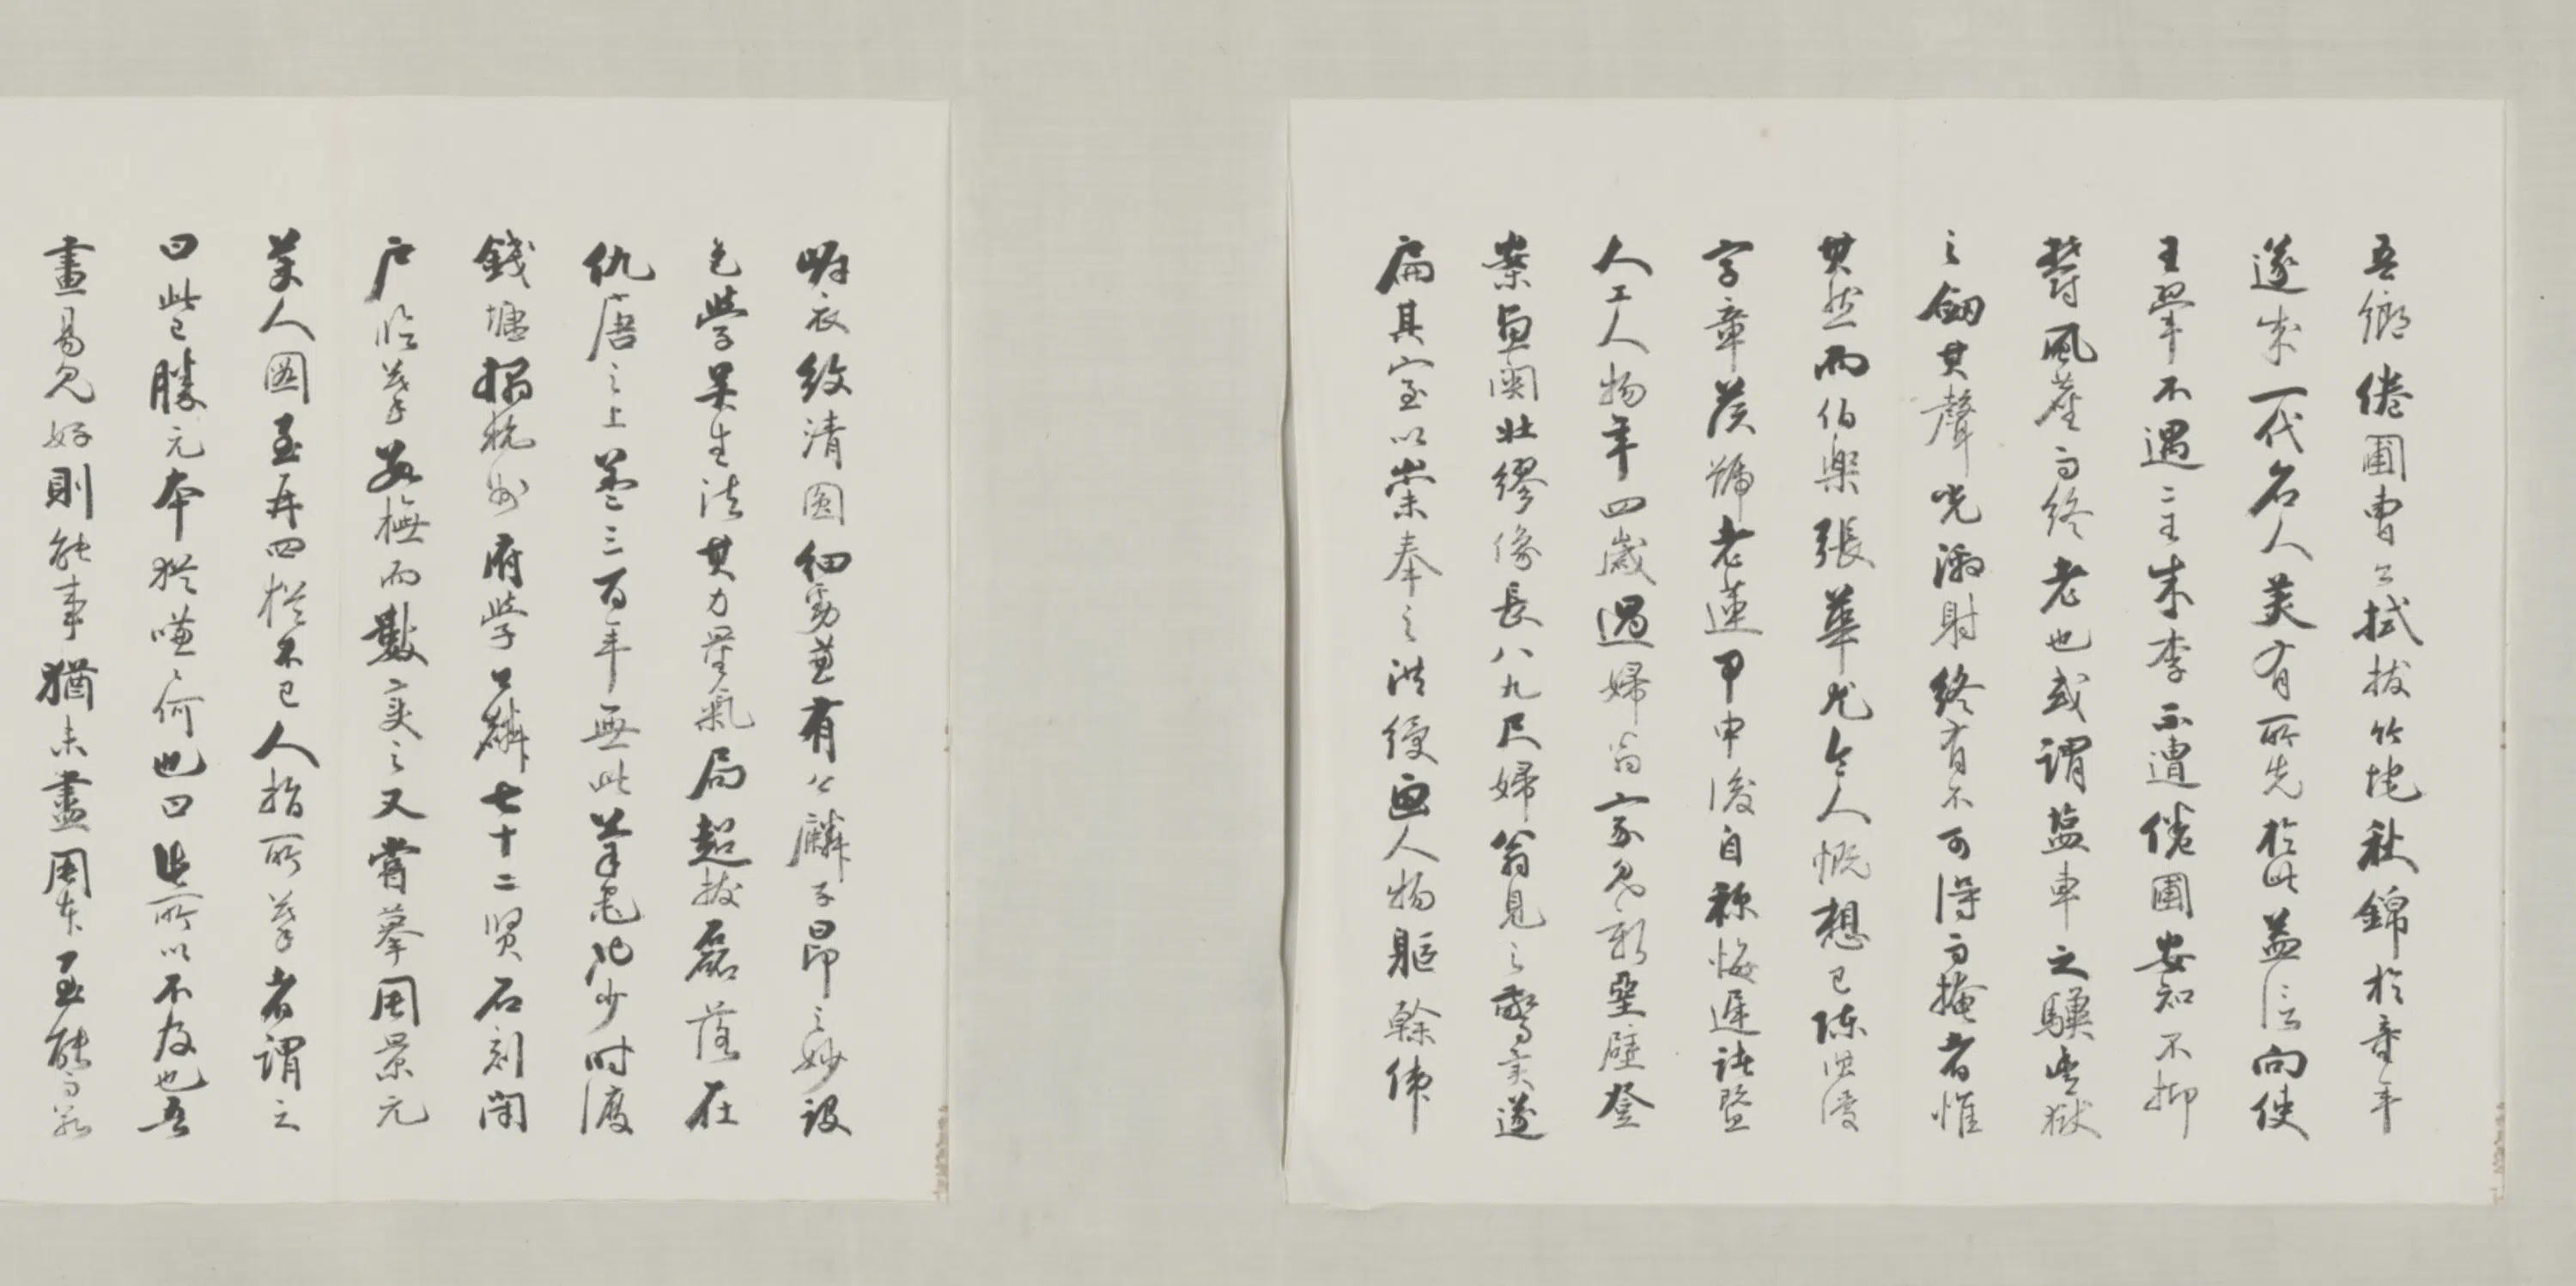 吾鄉倦圃曹公拭拔竹垞秋錦於童年
遂成一代名人美有所先於此益信向使
王翚不遇二王朱李不遭倦圃安知不抑
鬱風塵而終老也或謂盐車之驥豊獄
之劒其聲光激射終有不可得而掩者惟
其然而伯樂張華尤令人慨想已陳洪綬
字章矦號老蓮甲申後自稱悔遲諸暨
人工人物年四歲過婦翁家見新堊壁登
案畫關壯繆像長八九尺婦翁見之驚異遂
扃其室以崇奉之洪綬画人物軀榦偉
岸衣紋清圆细勁兼有公麟子昂之妙設
色學吳生法其力量氣局超拔磊落在
仇唐之上盖三百年無此筆墨也少時渡
錢塘搨杭州府學公麟七十二賢石刻閉
戶临摹数橅而數變之又嘗摹周景元
美人圖至再四犹不已人指所摹者謂之
曰此已勝元本犹嗛之何也曰此所以不及也吾
畫易見好則能事猶未盡周本至能而若